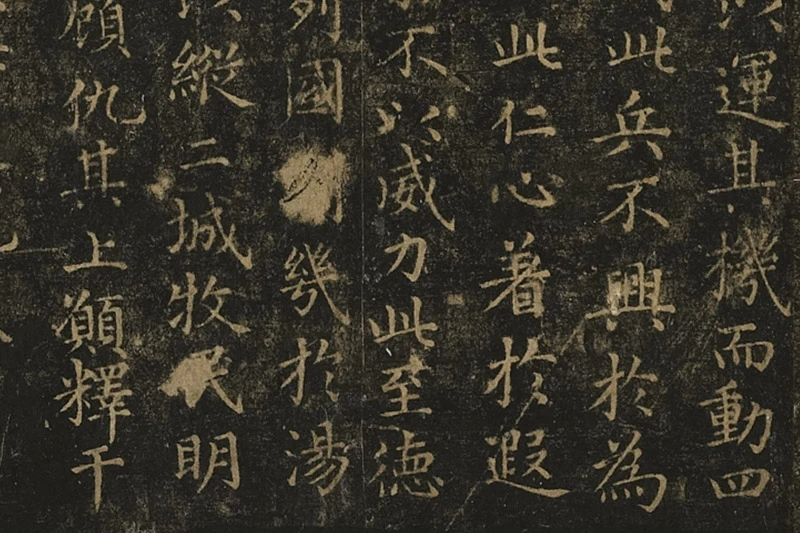 以運其機而動四
此兵不興於為
此仁心着於遐
不以威力此至德
列國幾於湯
以縱二城牧民明
顧仇其上願釋干